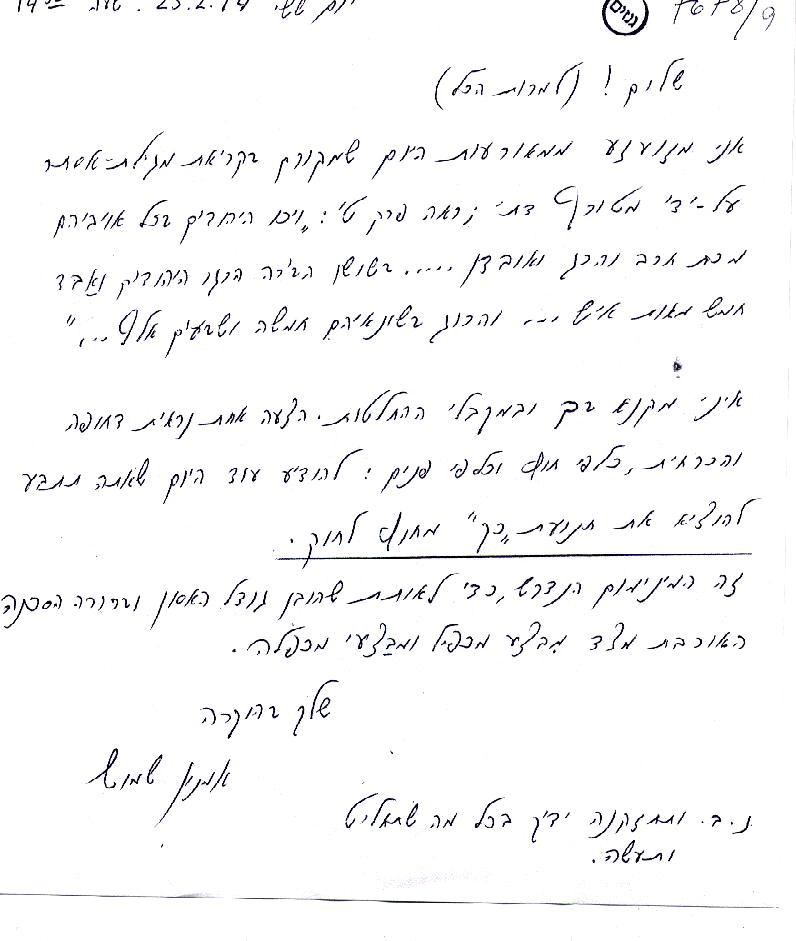 יום ששי 25.2.94. שעה 14
גנזים
7678/9
שלום! (למרות הכל)
אני מזועזע ממאורעות היום שמקורם בקריאת מגילת-אסתר
על-ידי מטורף דתי; ראה פרק ט': "ויכו היהודים בכל אויביהם
מכת חרב והרג ואובדן ..... בשושן הבירה הרגו היהודים ואבד
חמש מאות איש ... והרוג בשונאיהם חמשה ושבעים אלף ..."
אינני מקנא בך ובמקבלי ההחלטות. הצעה אחת נראית דחופה
והכרחית, כלפי חוץ וכלפי פנים: להודיע עוד היום שאתה תתבע
להוציא את תנועת "כך" מחוץ לחוק.
זה המינימום הנדרש, כדי לאותת שהובן גודל האסון וברורה הסכנה
האורבת מצד מבצע מכפיל ומבצעי מכפלה.
שלך בהוקרה
אמנון שמוש
נ.ב. ותחזקנה ידיך בכל מה שתחליט
ותעשה.